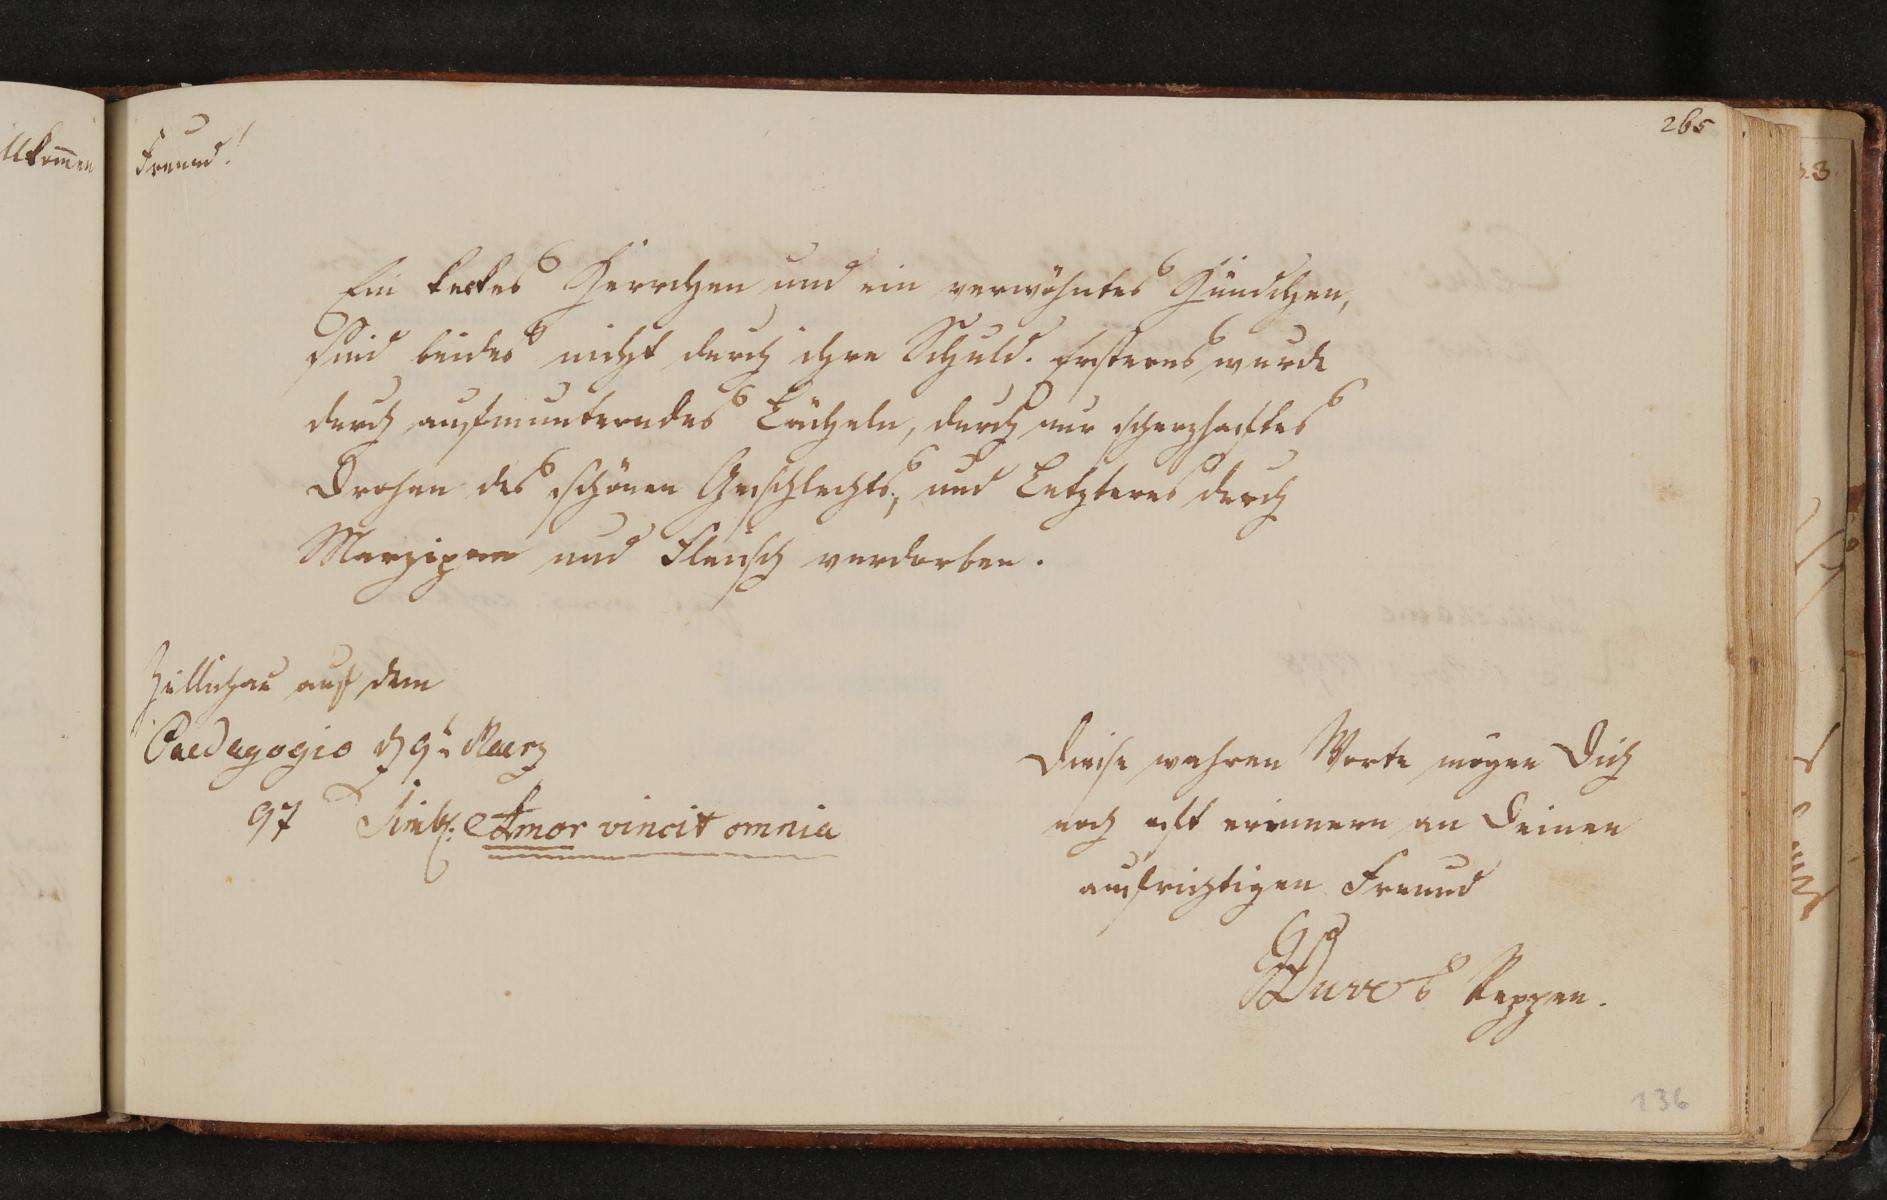 265
llkom̄en
Freund!
Ein keckes Herrchen und ein verwöhntes Hündchen,
sind beides nicht durch ihre Schuld. Ersteres wurde
durch aufmunterndes Lächeln, durch nur scherzhaftes
Drohen des schönen Geschlechts, und Letzteres durch
Marzipan und Fleisch verdorben.
Züllichau auf dem
Paedagogio d 9t Maerz
97 Simb: Amor vincit omnia
Diese wahren Worte mögen Dich
noch oft erinnern an Deinen
aufrichtigen Freund
Reppen.
136